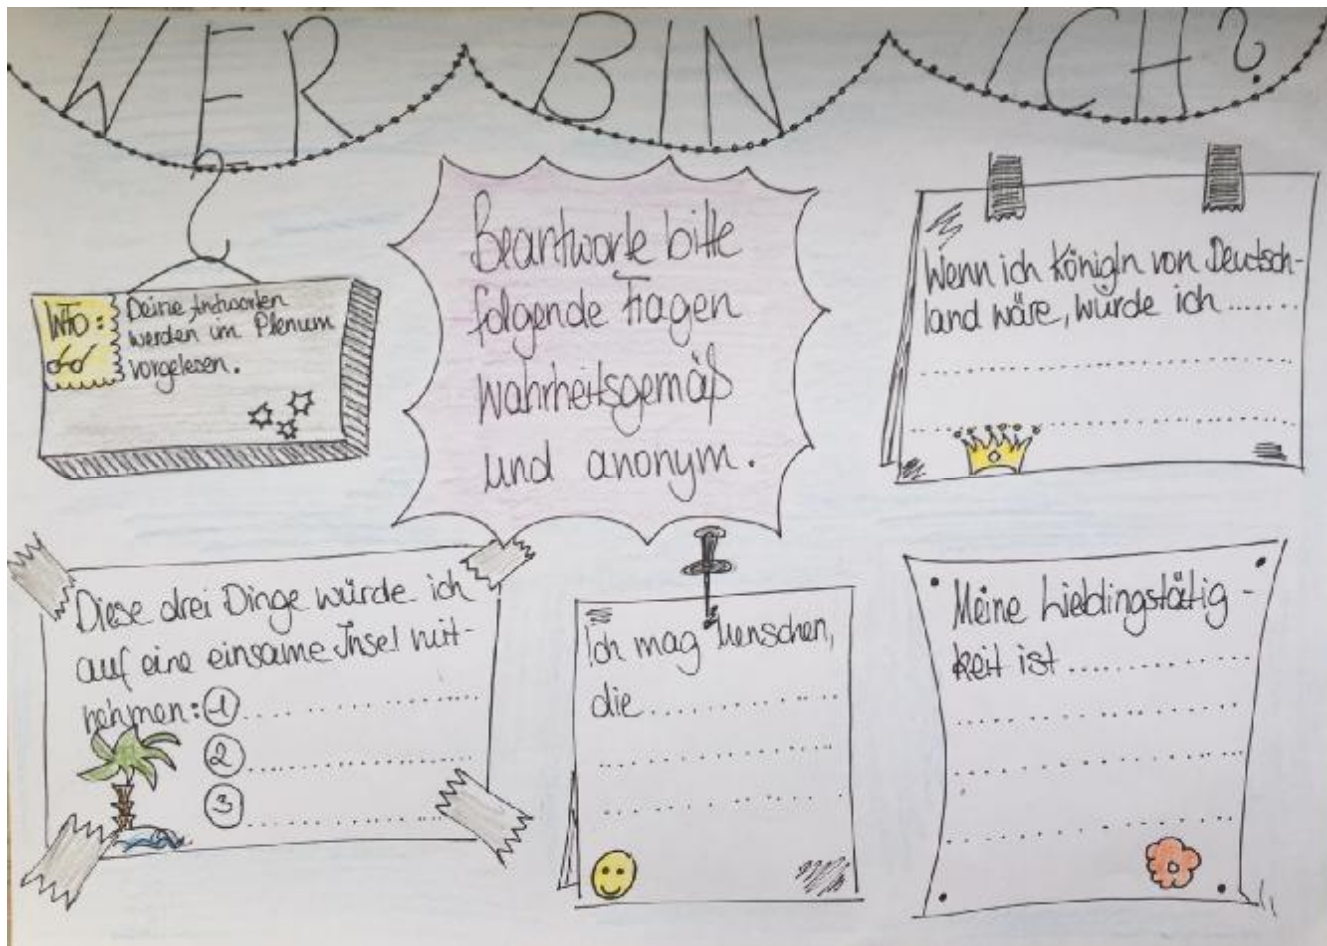 WER BIN ICH?
INFO:
Deine Antworten
werden im Plenum
vorgelesen.
Beantworte bitte
folgende Fragen
wahrheitsgemäß
und anonym.
Wenn ich Königin von Deutsch-
land wäre, würde ich .......
Diese drei Dinge würde ich
auf eine einsame Insel mit-
nehmen: 1 ..................
2 ..................
3 ..................
Ich mag Menschen,
die ..................
Meine Lieblingstätig-
keit ist ..................